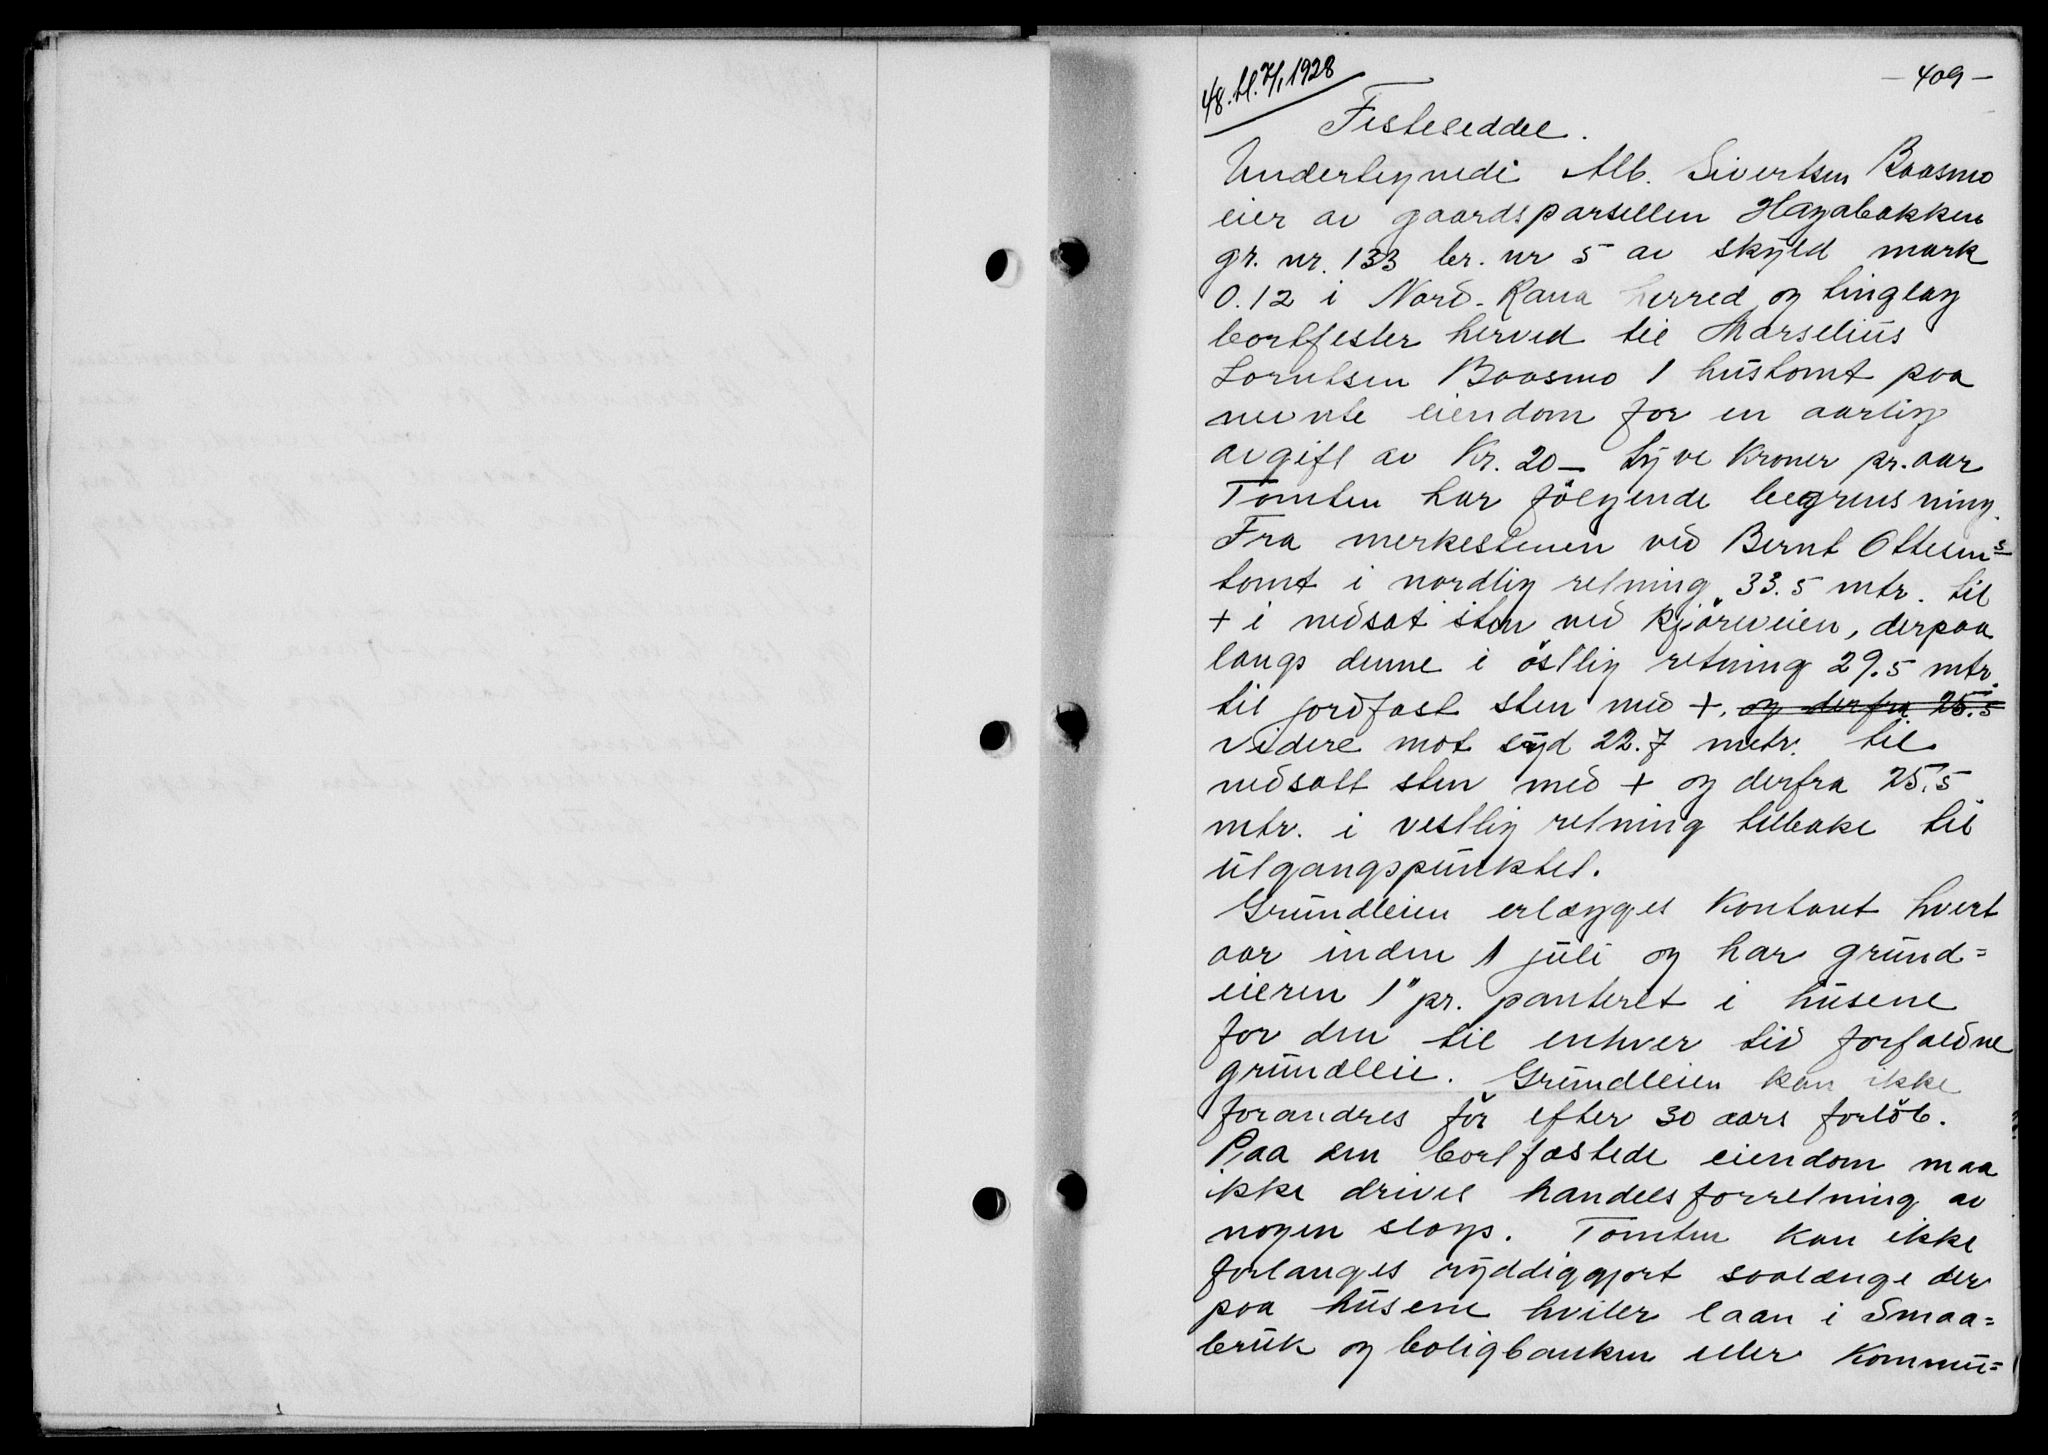 48. tl. 7/1 1928
- 409 -
Festeseddel.
Undertegnede Alb. Sivertsen Baasmo
eier av gaardsparsellen Hagabakken
gr. nr. 133 br. nr 5 av skyld mark
0.12 i Nord-Rana herred og tinglag
bortfester herved til Marselius
Lorntsen Baasmo 1 hustomt paa
nevnte eiendom for en aarlig
avgift av Kr. 20 - tyve Kroner pr. aar
Tomten har følgende begrensning.
Fra merkestenen ved Bernt Ottesens
tomt i nordlig retning 33.5 mtr. til
+ i nedsat sten ved kjøreveien, derpaa
langs denne i østlig retning 29.5 mtr.
til jordfast sten med +, og derfra 25.5
videre mot syd 22.7 metr. til
nedsatt sten med + og derfra 25.5
mtr. i vestlig retning tilbake til
utgangspunktet.
Grundleien erlægges Kontant hvert
aar inden 1 juli og har grund=
eieren 1" pr. panteret i husene
for den til enhver tid forfaldne
grundleie. Grundleien kan ikke
forandres før efter 30 aars forløb.
Paa den bortfæstede eiendom maa
ikke drives handelsforretning av
nogen slags. Tomten kan ikke
forlanges ryddiggjort saalænge der
paa husene hviler laan i Smaa=
bruk og boligbanken eller Kommu=